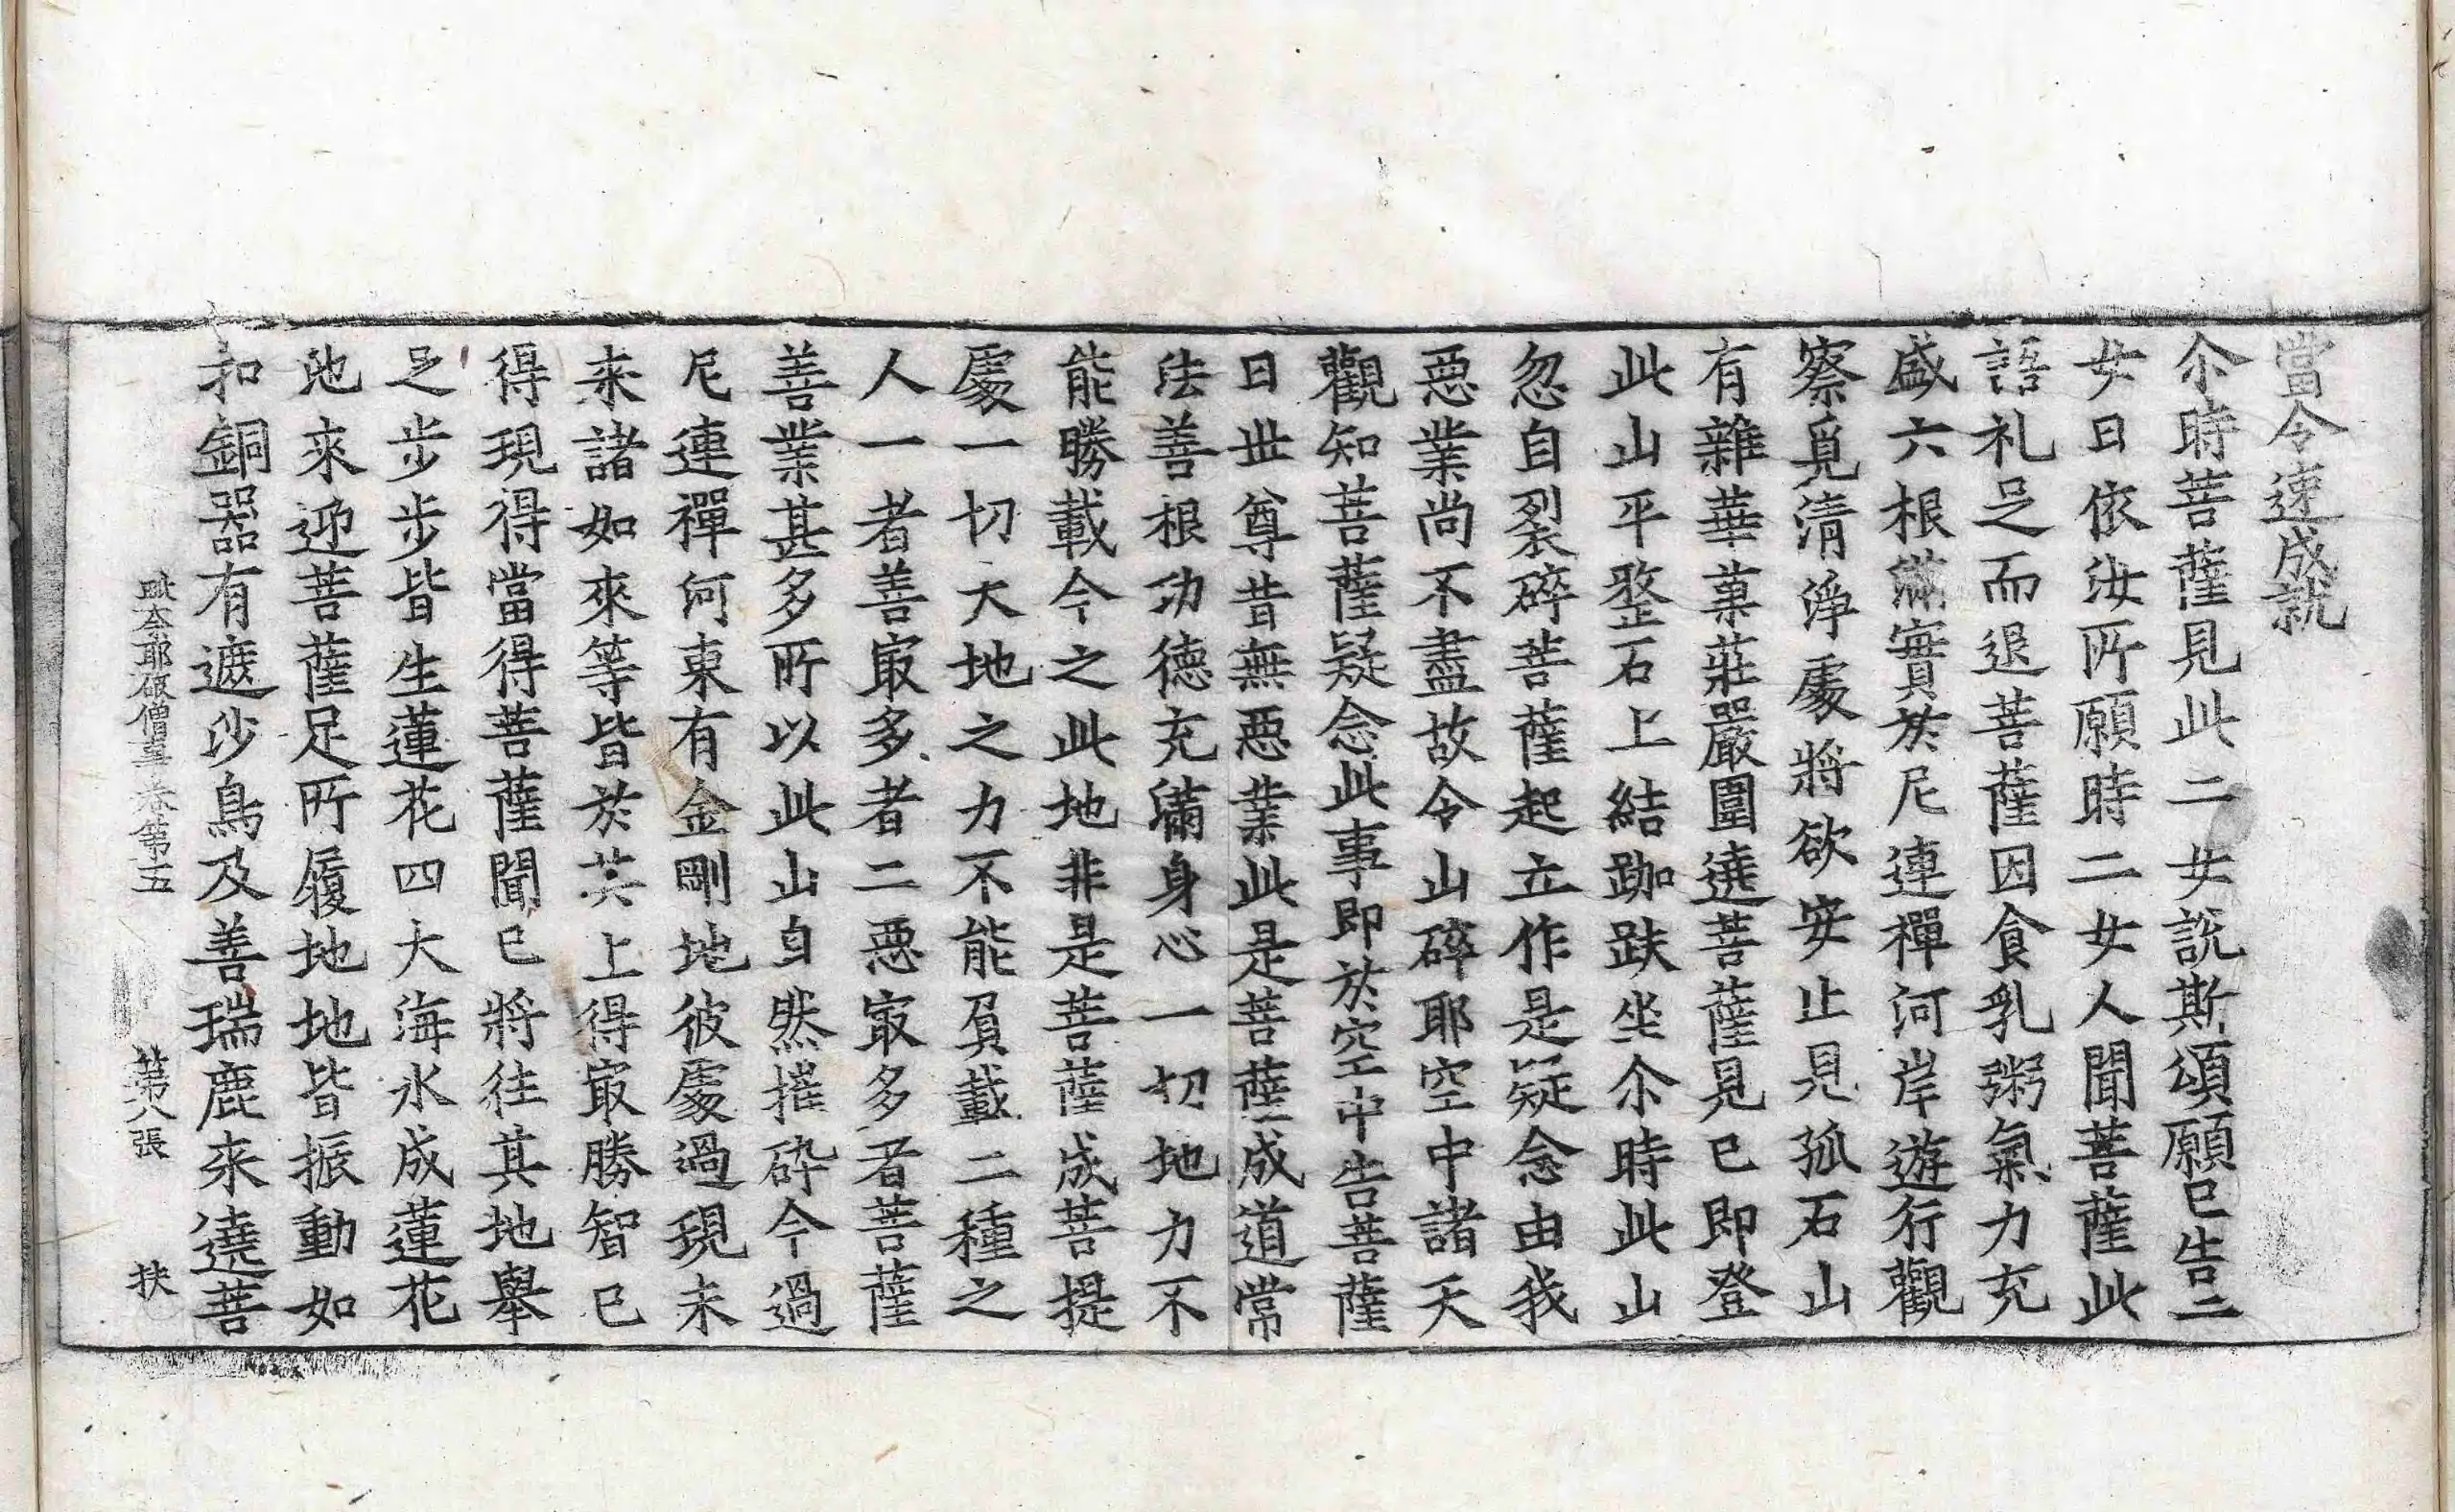 當令速成就
尒時菩薩見此二女說斯頌願已告二
女曰依汝所願時二女人聞菩薩此
語礼足而退菩薩因食乳粥氣力充
盛六根滿實於尼連禪河岸遊行觀
察覓清淨處將欲安止見孤石山
有雜華菓莊嚴圍遶菩薩見已即登
此山平整石上結跏趺坐尒時此山
忽自裂碎菩薩起立作是疑念由我
惡業尚不盡故令山碎耶空中諸天
觀知菩薩疑念此事即於空中告菩薩
曰世尊昔無惡業此是菩薩成道常
法善根功德充滿身心一切地力不
能勝載今之此地非是菩薩成菩提
處一切大地之力不能負載二種之
人一者善㝡多者二惡㝡多者菩薩
善業甚多所以此山自然摧碎今過
尼連禪河東有金剛地彼處過現未
来諸如來等皆於其上得㝡勝智已
得現得當得菩薩聞已將往其地舉
足步步皆生蓮花四大海水成蓮花
池來迎菩薩足所履地地皆振動如
扣銅器有遮沙鳥及善瑞鹿来遶菩
耶破僧事卷第五 第八張 扶